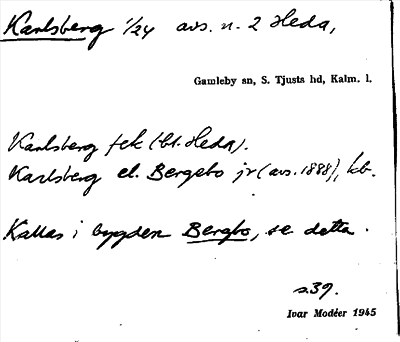 Karlsberg 1/24 avs. n. 2 Heda,
Gamleby sn, S. Tjusts hd, Kalm. l.
Karlsberg fek (bl. Heda).
Karlsberg el. Bergsbo jr (avs. 1888), kb.
Kallas i bygden Bergbo, se detta.
s. 39.
Ivar Modéer 1945